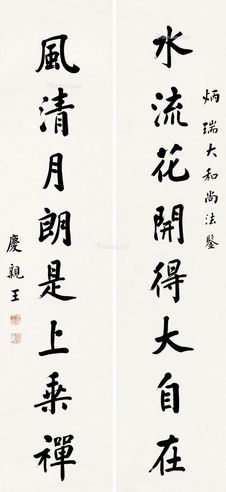 炳瑞大和尚法鑒
水流花開得大自在
風清月朗是上乘禪
慶親王